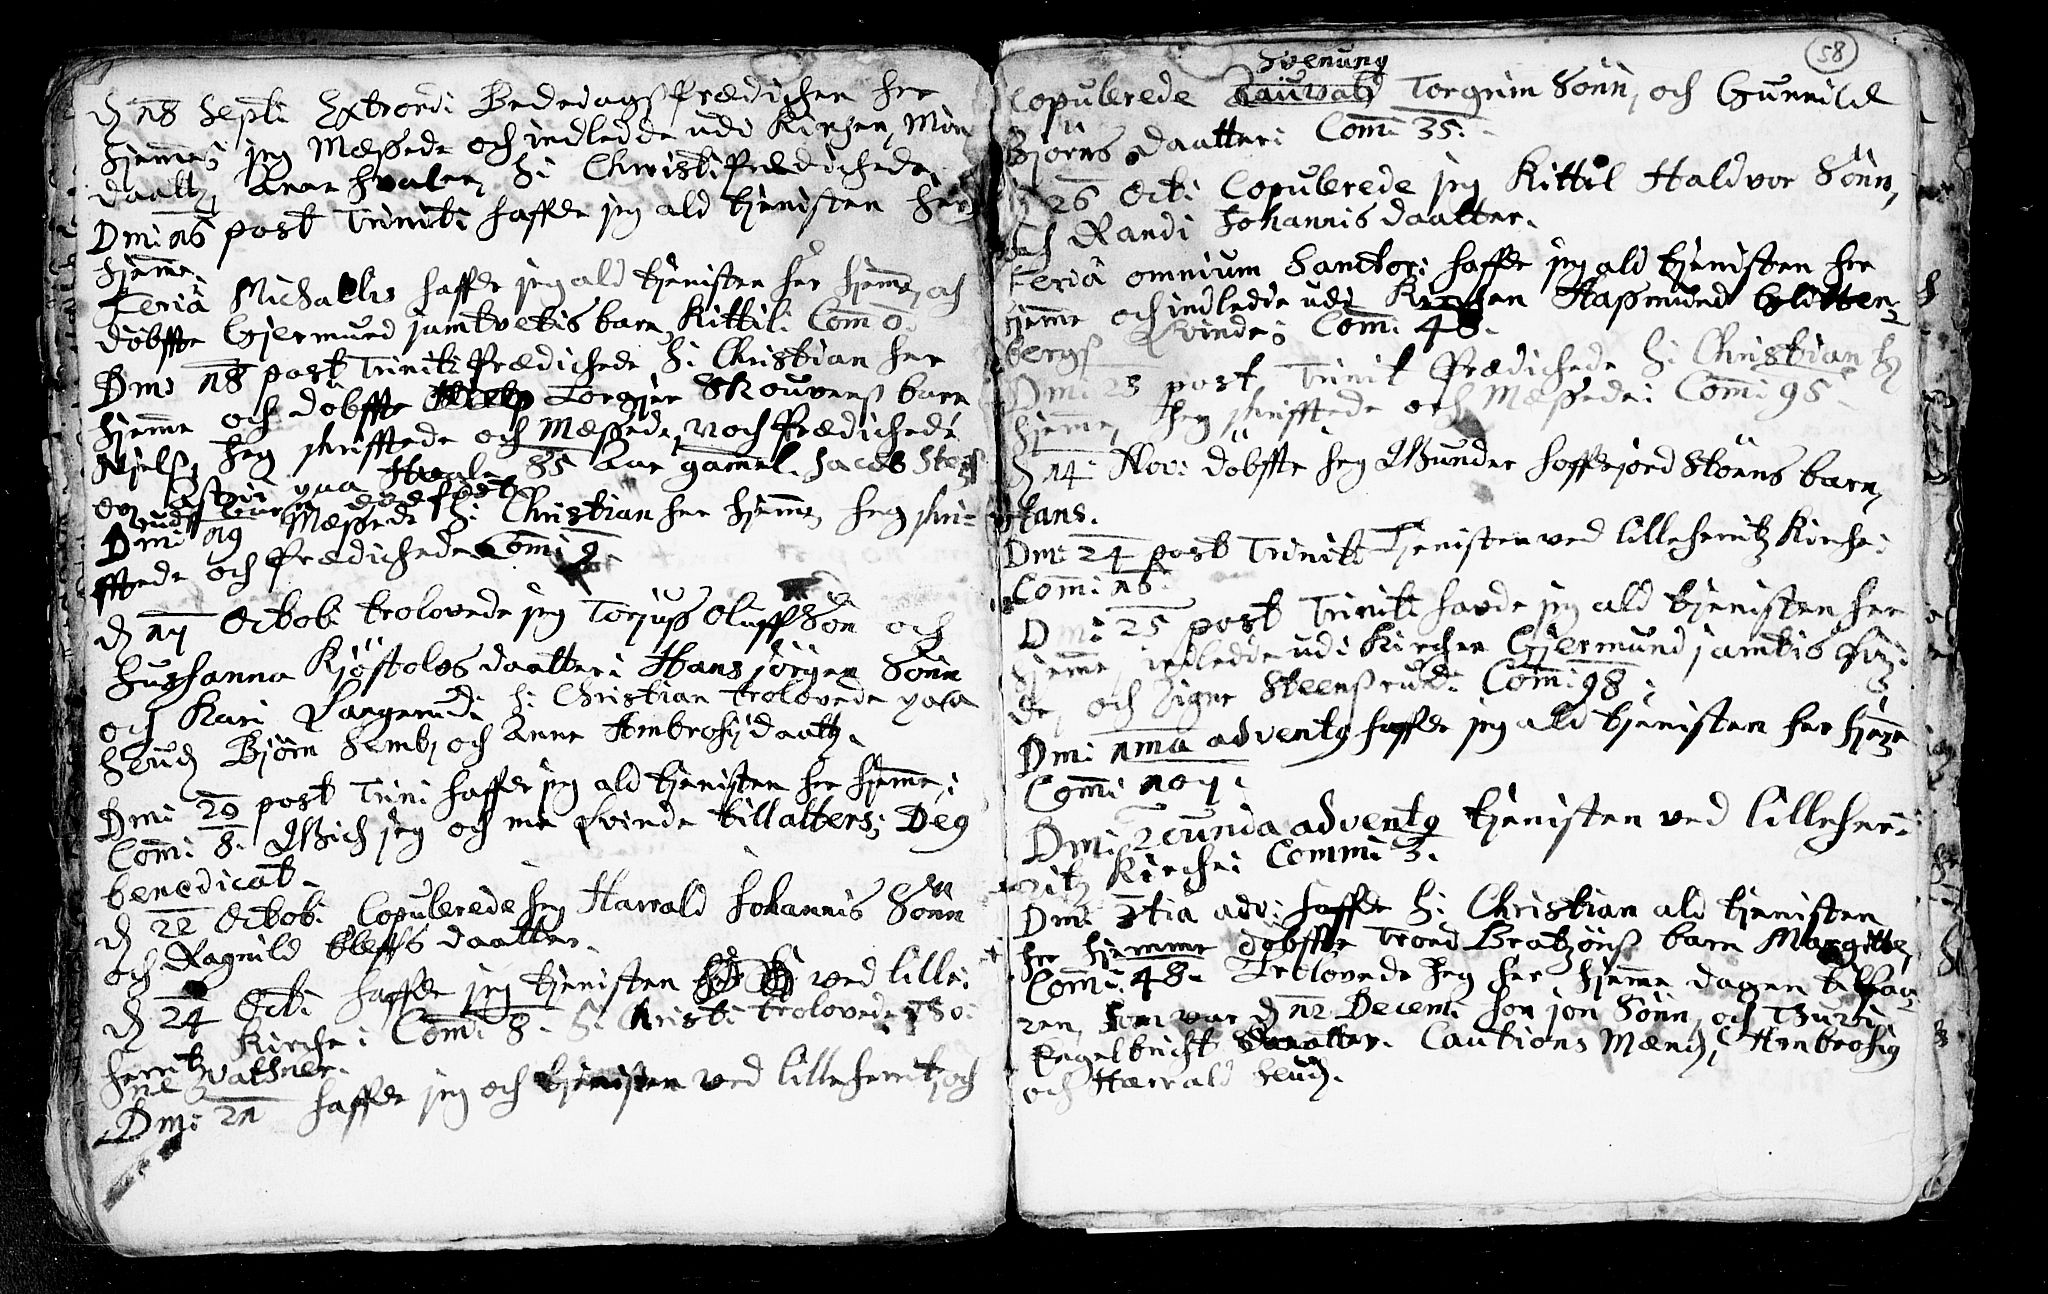 d 18 Septi Extrordi Bededags Prædichen her
hjemme, jeg Messede och indledde udi Kirchen, Mon
daatt, Anne Hvaler, H: Christi Prædichede
Dmi 16 post Trinit: haffde jeg ald tjenisten her
hjemme.
Feria Michaelis haffde jeg ald tjenisten her hjemme, och
döbffte Gjermund jamtvetis barn, Kittil: Com 0.
Dmi 18 post Trinit: Prædichede H: Christian her
hjemme och döbffte Torgier Skouens barn
Njels, Jeg skrifftede och Messede, och Prædichede
paa Hvale 85 Aar gamel. Jacob
Dmi 19 Messede H: Christian her hjemme, Jeg skri-
fftede och Prædichede Comi 9.
d 17 Octob: trolovede jeg Torjuss Oluff Sön och
Sushanna Kjöstolss daatter: Hans jörgen Sönn
och Kari Langerud: H: Christian trolovede paa
Heud Björn Semb, och Anne Ambrosij daatt.
Dmi 20 post Trini haffde jeg ald tjenisten her hjemme,:
Comi 8. Gich jeg och min Qvinde till alters; Deg
benedicat.
d 22 Octob: Copulerede Jeg Harrald Johannis Sönn
och Ragnild Cleffs daatter.
d 24 Octi haffde jeg tjenisten ved lille:
herritz Kirche: Comi 8. H: Christi trolovede Tho:
ne Vatsner.
Dmi 21 haffde jeg och tjenisten ved lilleherritz, och
58
Svenung
Copulerede Torgrim Sönn, och Gunnild
Björns daatter: Comi 35.
d 26 Octi Copulerede jeg Kittil Haldvor Sönn,
och Randi Johannis daatter.
Feria omnium Sanctor: haffde jeg ald tjenisten her
hjemme och indledde udi Kirchen Aassmund Glitten-
bergs Qvinde; Comi 48.
Dmi 23 post Trinit Prædichede H: Christian her
hjemme, Jeg skrifftede och Messede: Comi 95.
d 14 Nov: döbffte Jeg Gunder hoffsjord Störens barn,
Hans.
Dmi 24 post Trinit: Tjenisten ved lilleherritz Kirche:
Comi 16.
Dmi 25 post Trinit: hafde jeg ald tjenisten her
hjemme, indledde udi Kirchen Gjermund jamtvis Qvin-
de, och Signe Steensrud: Comi 98.
Dmi 1ma adventg haffde jeg ald tjenisten her hjemme
Comi 107.
Dmi 2cunda adventg tjenisten ved lilleher-
ritz Kirche: Commi 3.
Dmi 3tia adv: haffde H: Christian ald tjenisten
her hjemme döbffte Trond Bratzöns barn Margitte,
Comi 48. Trolovede Jeg her hjemme dagen tilfaa-
ren, som var d 12 Decem: Jon jon Sönn, och Thuri
Engelbricht daatter. Cautions Mend, Ambrosig
och Harrald Heud.